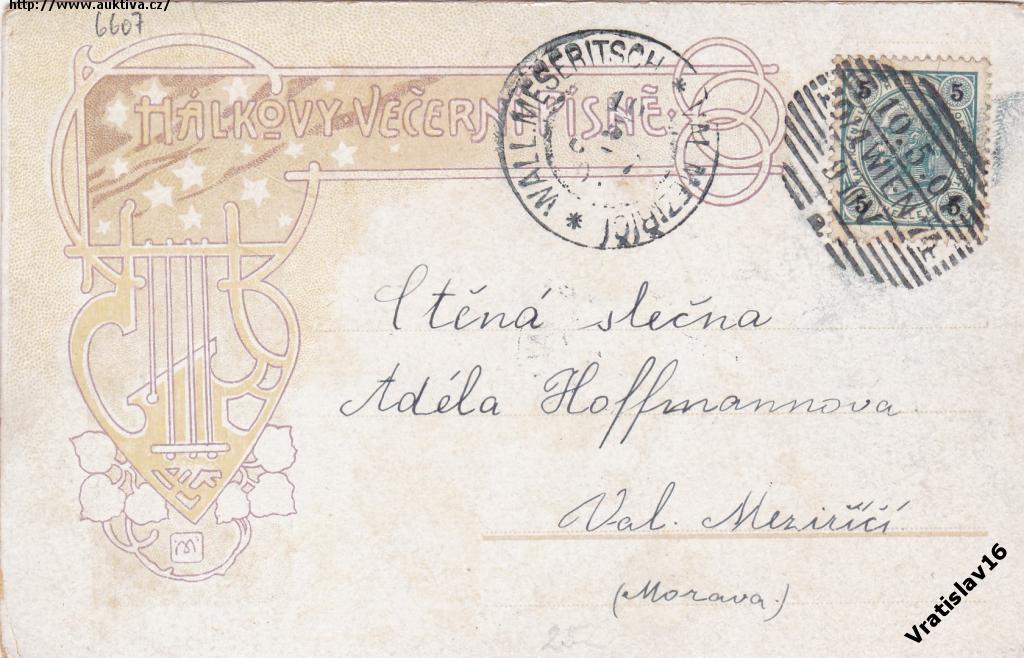 http://www.auktiva.cz/
6607
HÁLKOVY VEČERNÍ PÍSNĚ.
WALL. MESERITSCH * VAL. MEZIŘÍČÍ *
5 5
10.5.0
WIEN
5 5
Ctěná slečna
Adéla Hoffmannova
Val. Meziříčí
(Morava.)
M
25
Vratislav16